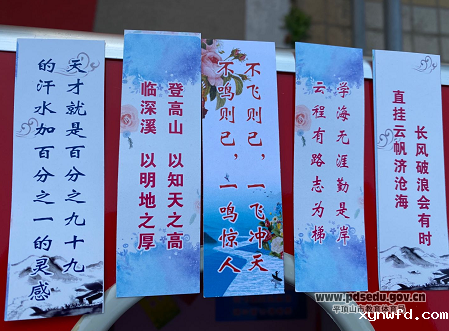 天才就是百分之九十九
的汗水加百分之一的灵感
登高山 以知天之高
临深溪 以明地之厚
不飞则已，一飞冲天
不鸣则已，一鸣惊人
学海无涯勤是岸
云程有路志为梯
长风破浪会有时
直挂云帆济沧海
www.pdsedu.gov.cn
平顶山市教育体育局
xynwfd.com